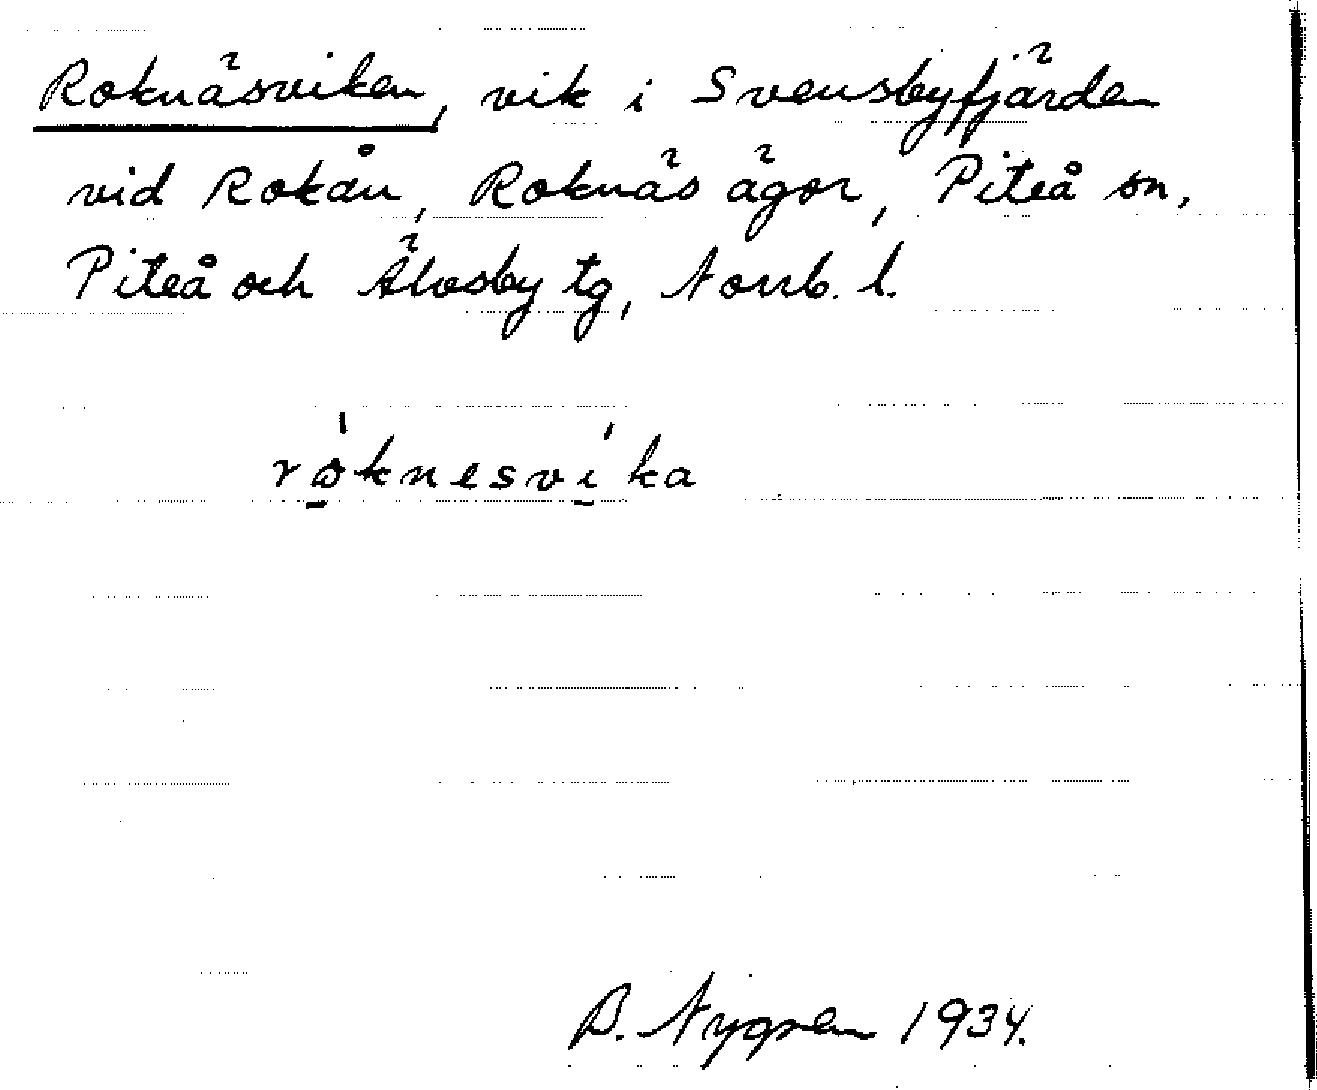 Roknäsviken, vik i Svensbyfjärden
vid Rokån, Roknäs ägor, Piteå sn,
Piteå och Älvsby tg, Norrb. l.
rǿ̱knesví̱ka
B. Nygren 1934.